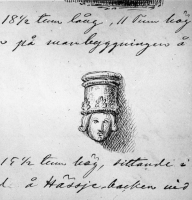 18½ tum lång, 11 tum hög
på manbyggningen å
15½ tum hög, sittande i
å Hässje-backen vid